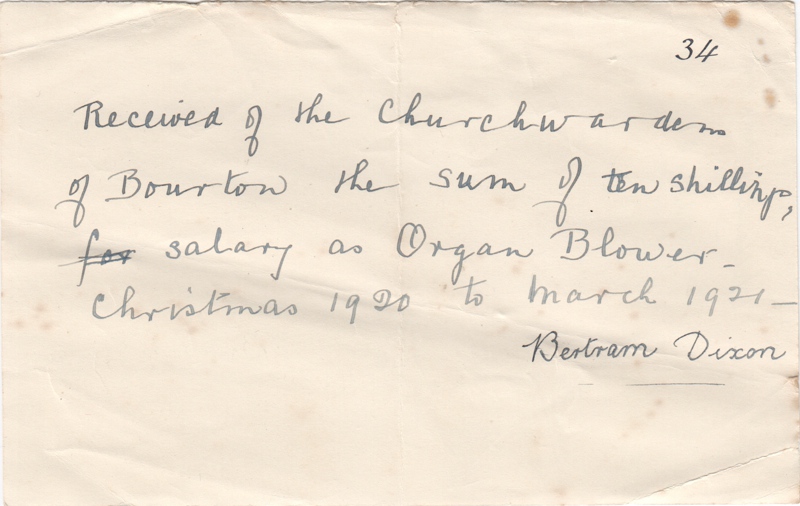 34
Received of the Churchwardens
of Bourton the sum of ten shillings,
for salary as Organ Blower -
Christmas 1920 to March 1921 -
Bertram Dixon